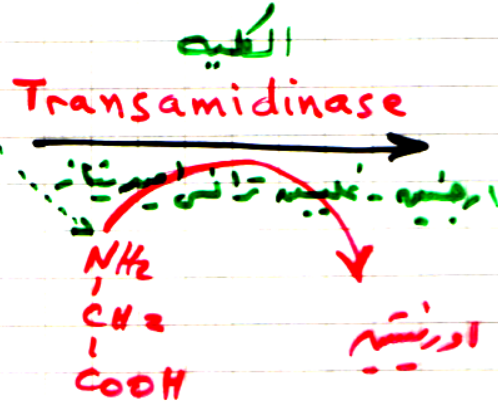 الكليه
Transamidinase
ارجنين - غليسين ترانس اميدنياز
NH2
CH2
COOH
اورنيتين